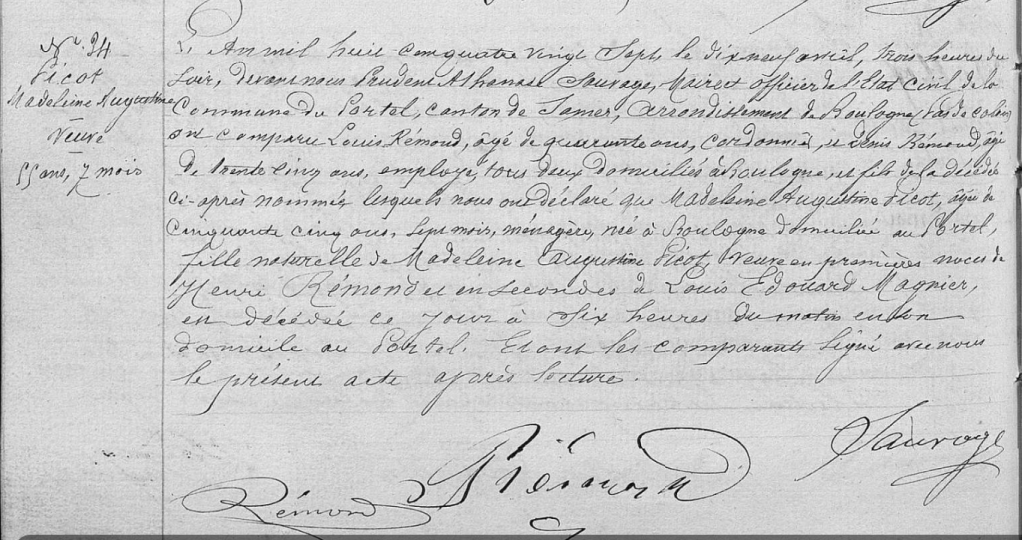 N°. 34
Picot
Madeleine Augustine
Veuve
55 ans, 7 mois
L'An mil huit cent quatre vingt Sept le dix neuf avril, trois heures du
Soir, devant nous Prudent Athanase Sauvage, Maire et officier de l'Etat civil de la
Commune du Portel, canton de Samer, arrondissement de Boulogne (Pas de Calais)
ont comparu Louis Rémond, âgé de quarante ans, cordonnier, et Denis Rémond, âgé
de trente cinq ans, employé, tous deux domiciliés à Boulogne, et fils de la décédée
ci-après nommée, lesquels nous ont déclaré que Madeleine Augustine Picot, âgée de
Cinquante cinq ans, Sept mois, ménagère, née à Boulogne domiciliée au Portel,
fille naturelle de Madeleine Augustine Picot, Veuve en premières noces de
Henri Rémond et en secondes de Louis Edouard Magnier,
est décédée ce jour à Six heures du matin en son
domicile au Portel. Et ont les comparants Signé avec nous
le présent acte après lecture.
Sauvage
Rémond
Rémond